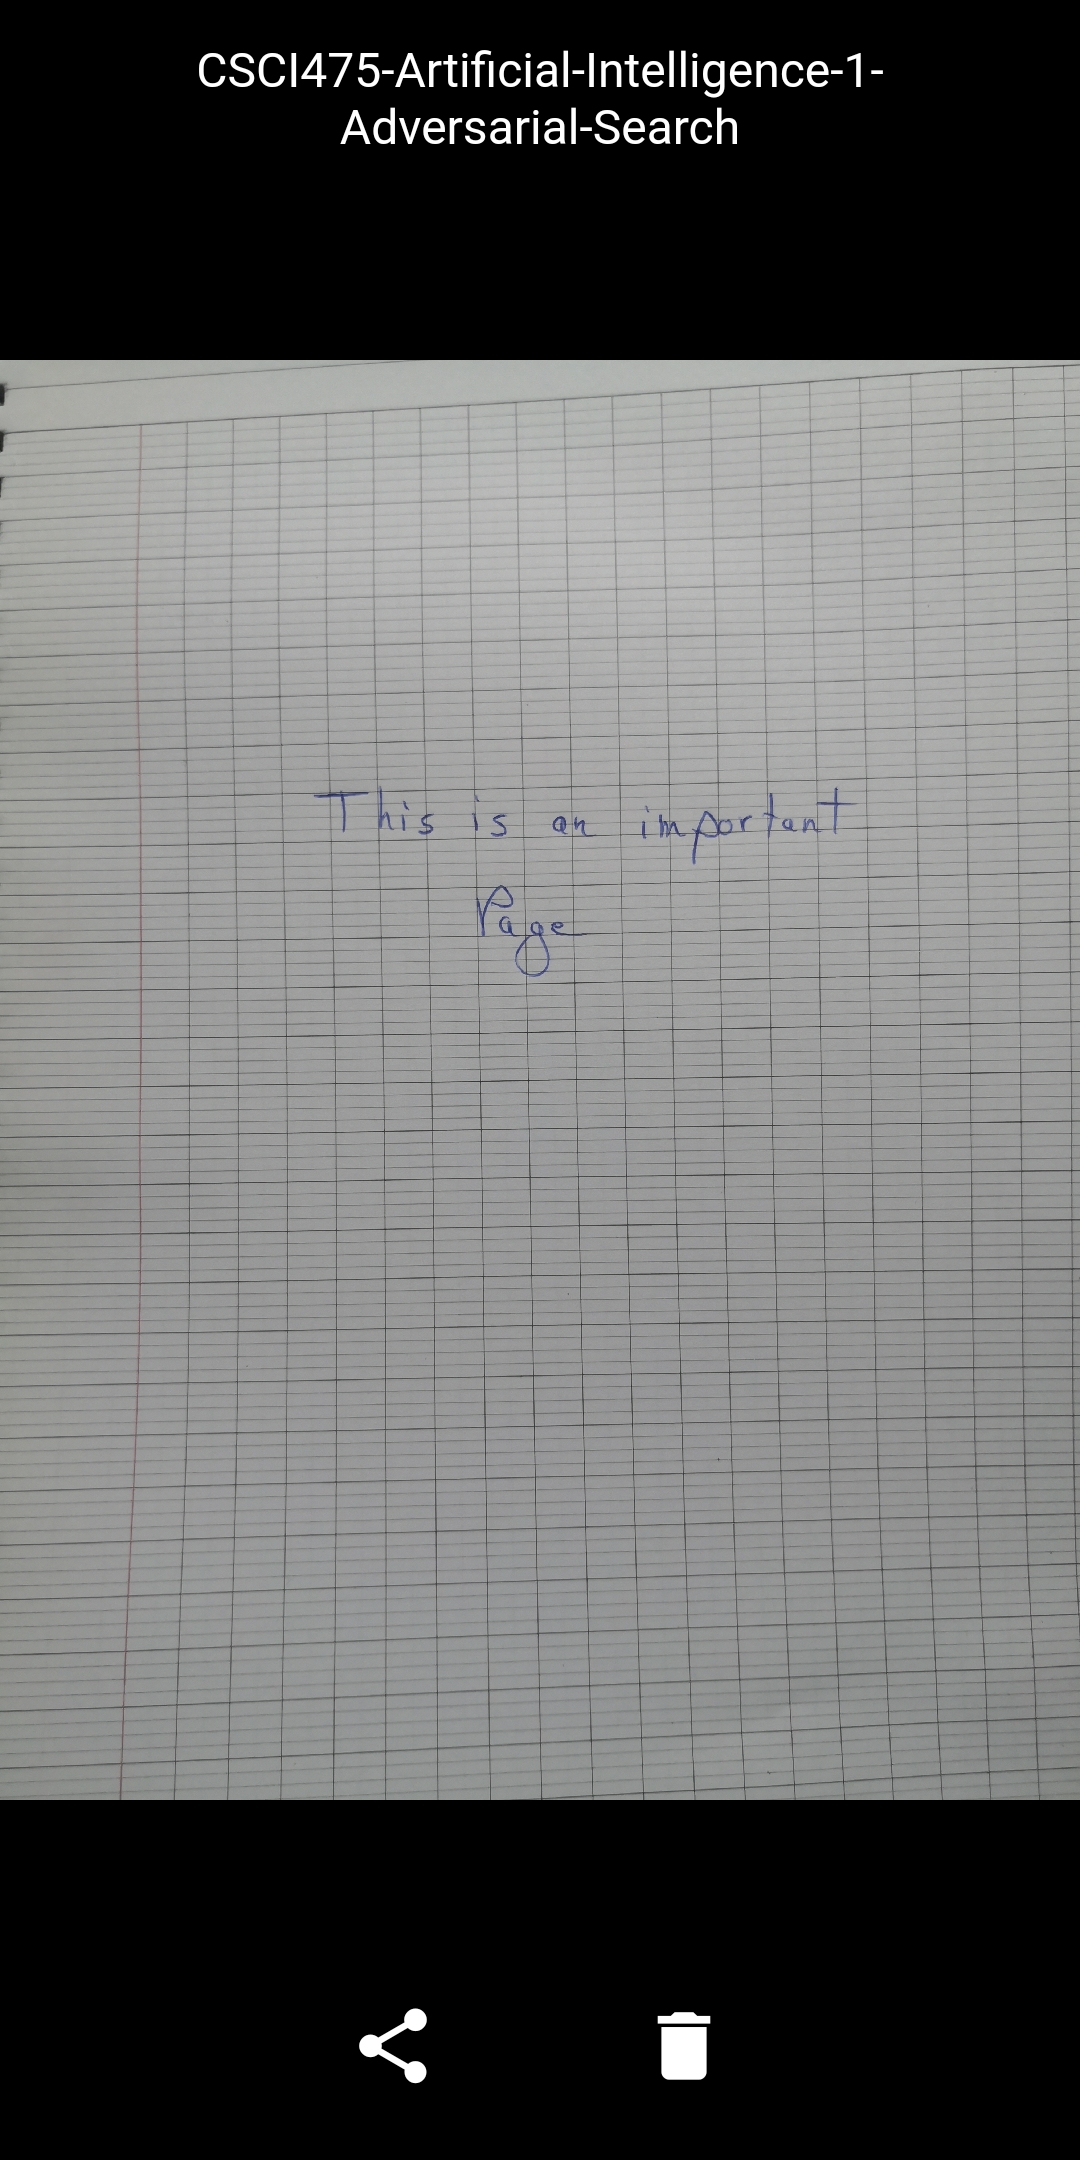 CSCI475-Artificial-Intelligence-1-
Adversarial-Search
This is an important
Page